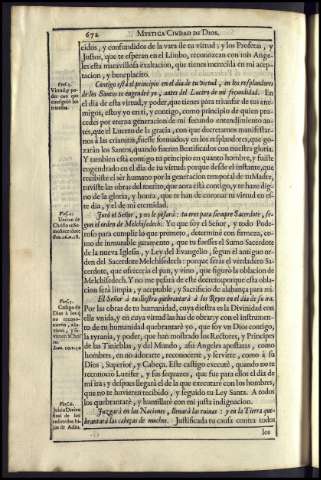 672 MYSTICA CIUDAD DE DIOS.
cidos, y confundidos de la vara de tu virtud; y los Profetas, y
Justos, que te esperan en el Limbo, reconozcan con mis Ange-
les esta maravillosa exaltacion, que tienes merecida en mi acep-
tacion, y beneplacito.
Contigo està el principio en el dia de tu virtud, en los resplandores
de los Santos te engendrè yo, antes del Lucero de mi fecundidad. En
el dia de tu virtud, y poder, que tienes para triunfar de tus ene-
migos, estoy yo en ti, y contigo, como principio de quien pro-
cedes por eterna generacion de mi fecundo entendimiento an-
tes, que el Lucero de la gracia, con que decretamos manifestar-
nos à las criaturas, fuesse formado, y en los resplandores, que go-
zaràn los Santos, quando fueren Beatificados con nuestra gloria.
Y tambien està contigo tu principio en quanto hombre, y fuiste
engendrado en el dia de tu virtud; porque desde el instante, que
recibiste el sèr humano por la generacion temporal de tu Madre,
tuviste las obras del merito, que aora està contigo, y te haze dig-
no de la gloria, y honra, que te han de coronar tu virtud en es-
te dia, y el de mi eternidad.
Jurò el Señor, y no le pesarà: tu eres para siempre Sacerdote, se-
gun el orden de Melchisedech. Yo que soy el Señor, y todo Pode-
roso para cumplir lo que prometo, determinè con firmeza, co-
mo de inmutable juramento, que tu fuesses el Sumo Sacerdote
de la nueva Iglesia, y Ley del Evangelio, segun el antiguo or-
den del Sacerdote Melchisedech: porque seràs el verdadero Sa-
cerdote, que ofrecerà el pan, y vino, que figurò la oblacion de
Melchisedech. Y no me pesarà de este decreto; porque esta obla-
cion serà limpia, y aceptable, y Sacrificio de alabança para mi.
El Señor à tu diestra quebrantarà à los Reyes en el dia de su ira.
Por las obras de tu humanidad, cuya diestra es la Divinidad con
ella unida, y en cuya virtud las has de obrar; y con el instrumen-
to de tu humanidad quebrantarè yo, que soy un Dios contigo,
la tyrania, y poder, que han mostrado los Rectores, y Principes
de las Tinieblas, y del Mundo, assi Angeles apostatas, como
hombres, en no adorarte, reconocerte, y servirte, como à su
Dios, Superior, y Cabeça. Este castigo executè, quando no te
reconociò Lucifer, y sus sequaces, que fue para ellos el dia de
mi ira; y despues llegarà el de la que executarè con los hombres,
que no te huvieren recibido, y seguido tu Ley Santa. A todos
los quebrantarè, y humillarè con mi justa indignacion.
Juzgarà en las Naciones, llenarà las ruinas: y en la Tierra que-
brantarà las cabeças de muchos. Justificada tu causa contra todos
los